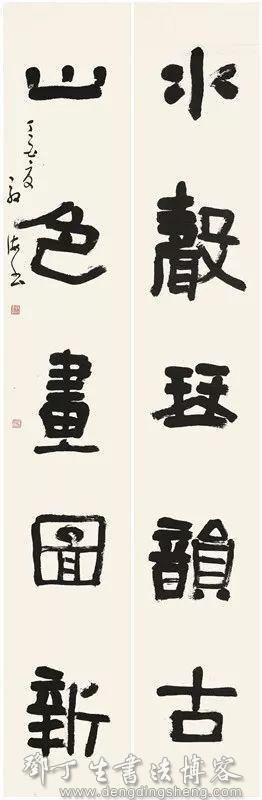 水聲琴韻古
山色畫圖新
鄧丁生書法博客
www.dengdingsheng.com